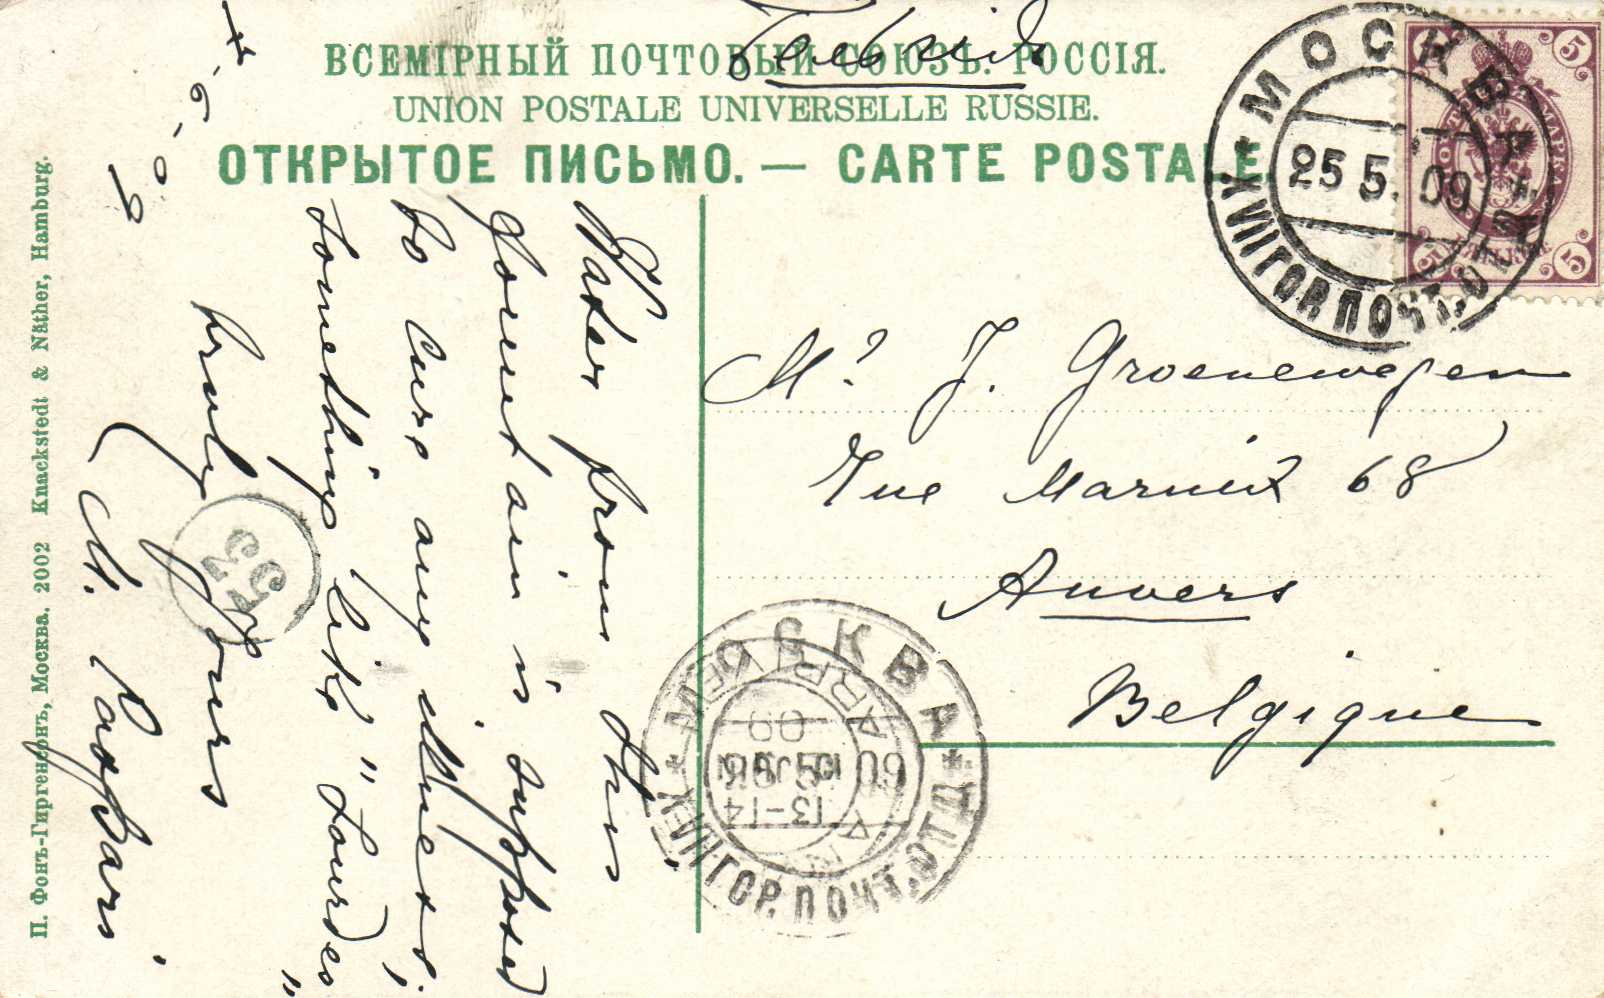 ВСЕМІРНЫЙ ПОЧТОВЫЙ СОЮЗЪ. РОССІЯ.
UNION POSTALE UNIVERSELLE RUSSIE.
ОТКРЫТОЕ ПИСЬМО. — CARTE POSTALE.
МОСКВА
25 5. 09
XVIII ГОР. ПОЧТ. ОТД.
5
ПОЧТОВАЯ МАРКА
5
5
Mr. J. Groenewegen
Rue Marnix 68
Anvers
Belgique
7-6-09
Water from this
fountain is supposed
to cure any illness;
something like "Lourdes"
truly yours
M. Raffari
МОСКВА
13-14
09
XVIII ГОР. ПОЧТ. ОТД.
П. Фонъ-Гиргенсонъ, Москва. 2002 Knackstedt & Näther, Hamburg.